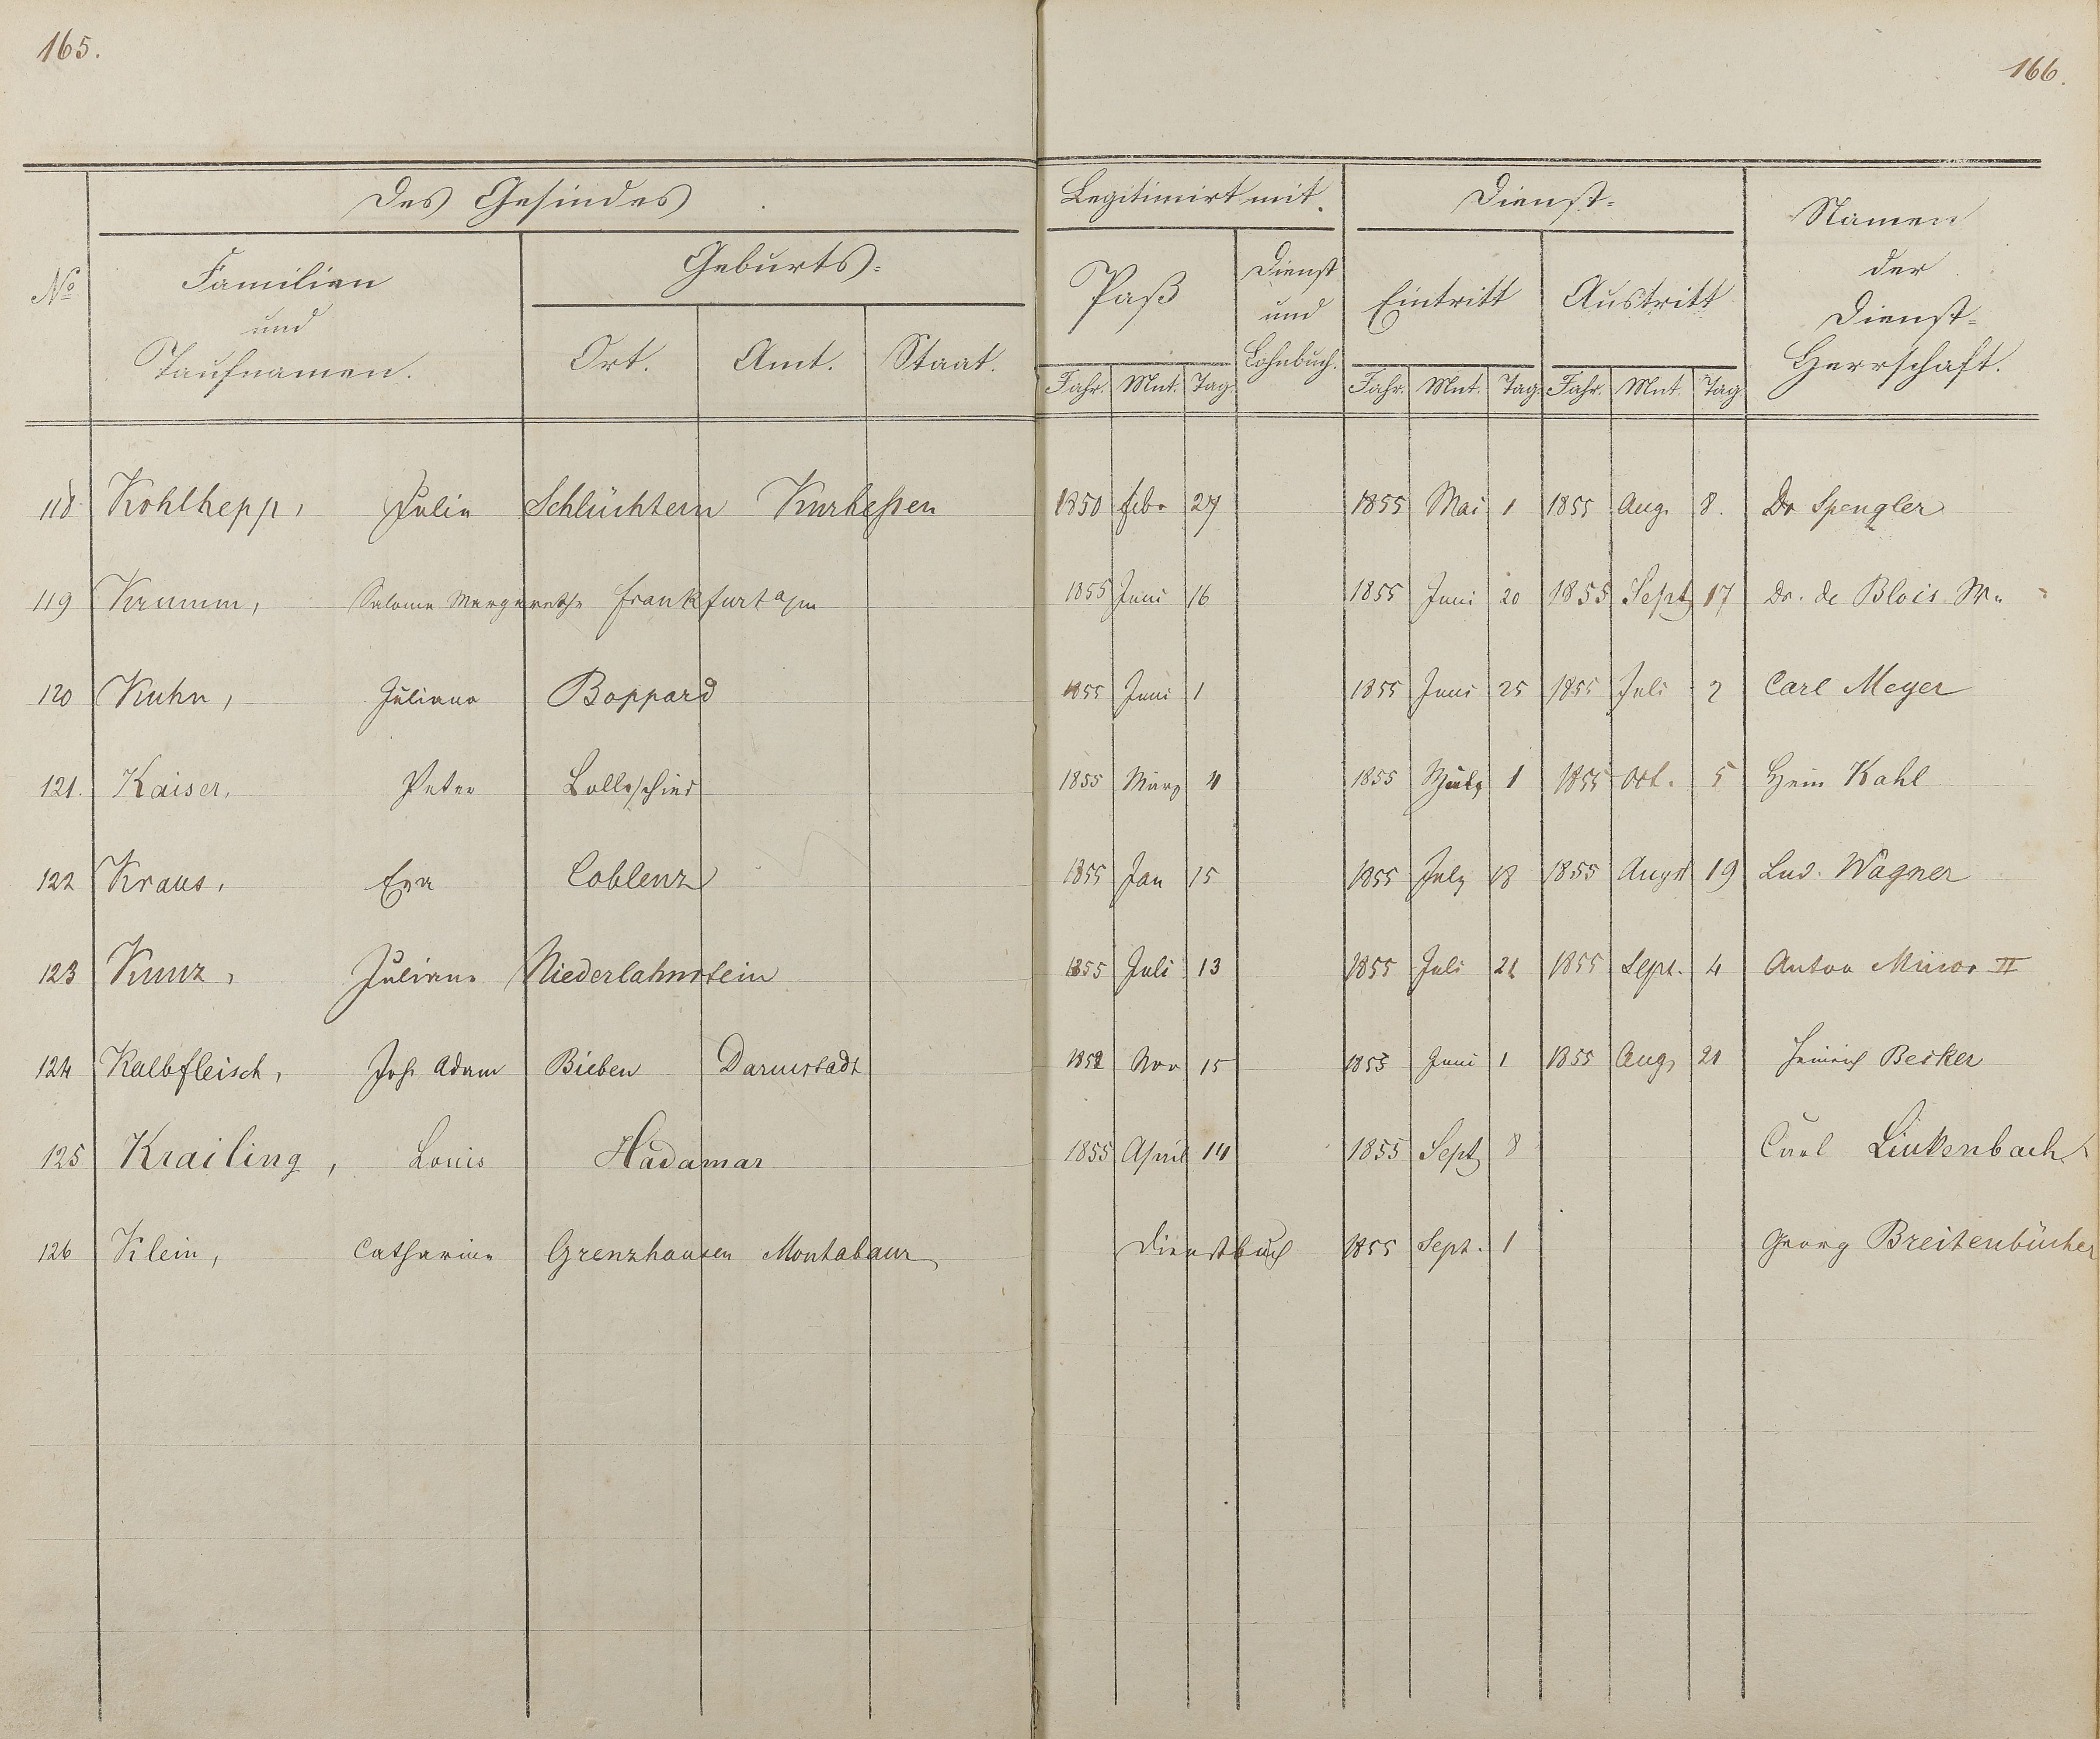 165.
166.
Des Gesindes
Legitimirt mit.
Dienst-
Namen
der
Dienst-
Herrschaft.
No
Familien
und
Taufnamen.
Geburts-
Ort. Amt. Staat.
Paß
Dienst
und
Lohnbuch.
Eintritt Austritt
Jahr. Mnt. Tag. Jahr. Mnt. Tag. Jahr. Mnt. Tag
118 Kohlhepp, Julie Schlüchtern Kurheßen 1850 febr 27 1855 Mai 1 1855 Aug. 8. Dr Spengler
119 Krumm, Salome Margarethe Frankfurt a/m 1855 Juni 16 1855 Juni 20 1855 Sept 17 Dr. de Blois
120 Kuhn, Juliana Boppard 1855 Juni 1 1855 Juni 25 1855 Juli 2 Carl Meyer
121. Kaiser, Peter Lollschied 1855 März 4 1855 July 1 1855 Oct. 5 Hein Kahl
122 Kraus, Eva Coblenz 1855 Jan 15 1855 July 18 1855 Augst 19 Lud. Wagner
123 Kunz, Juliane Niederlahnstein 1855 Juli 13 1855 Juli 21 1855 Sept. 4 Anton II
124 Kalbfleisch, Joh Adam Bieben Darmstadt 1852 Nov 15 1855 Juni 1 1855 Aug. 21 Heinrich Becker
125 Krailing, Louis Hadamar 1855 April 14 1855 Sept 8 Carl Linkenbach
126 Klein, Catharine Grenzhausen Montabaur Dienstbuch 1855 Sept. 1 Georg Breitenbücher